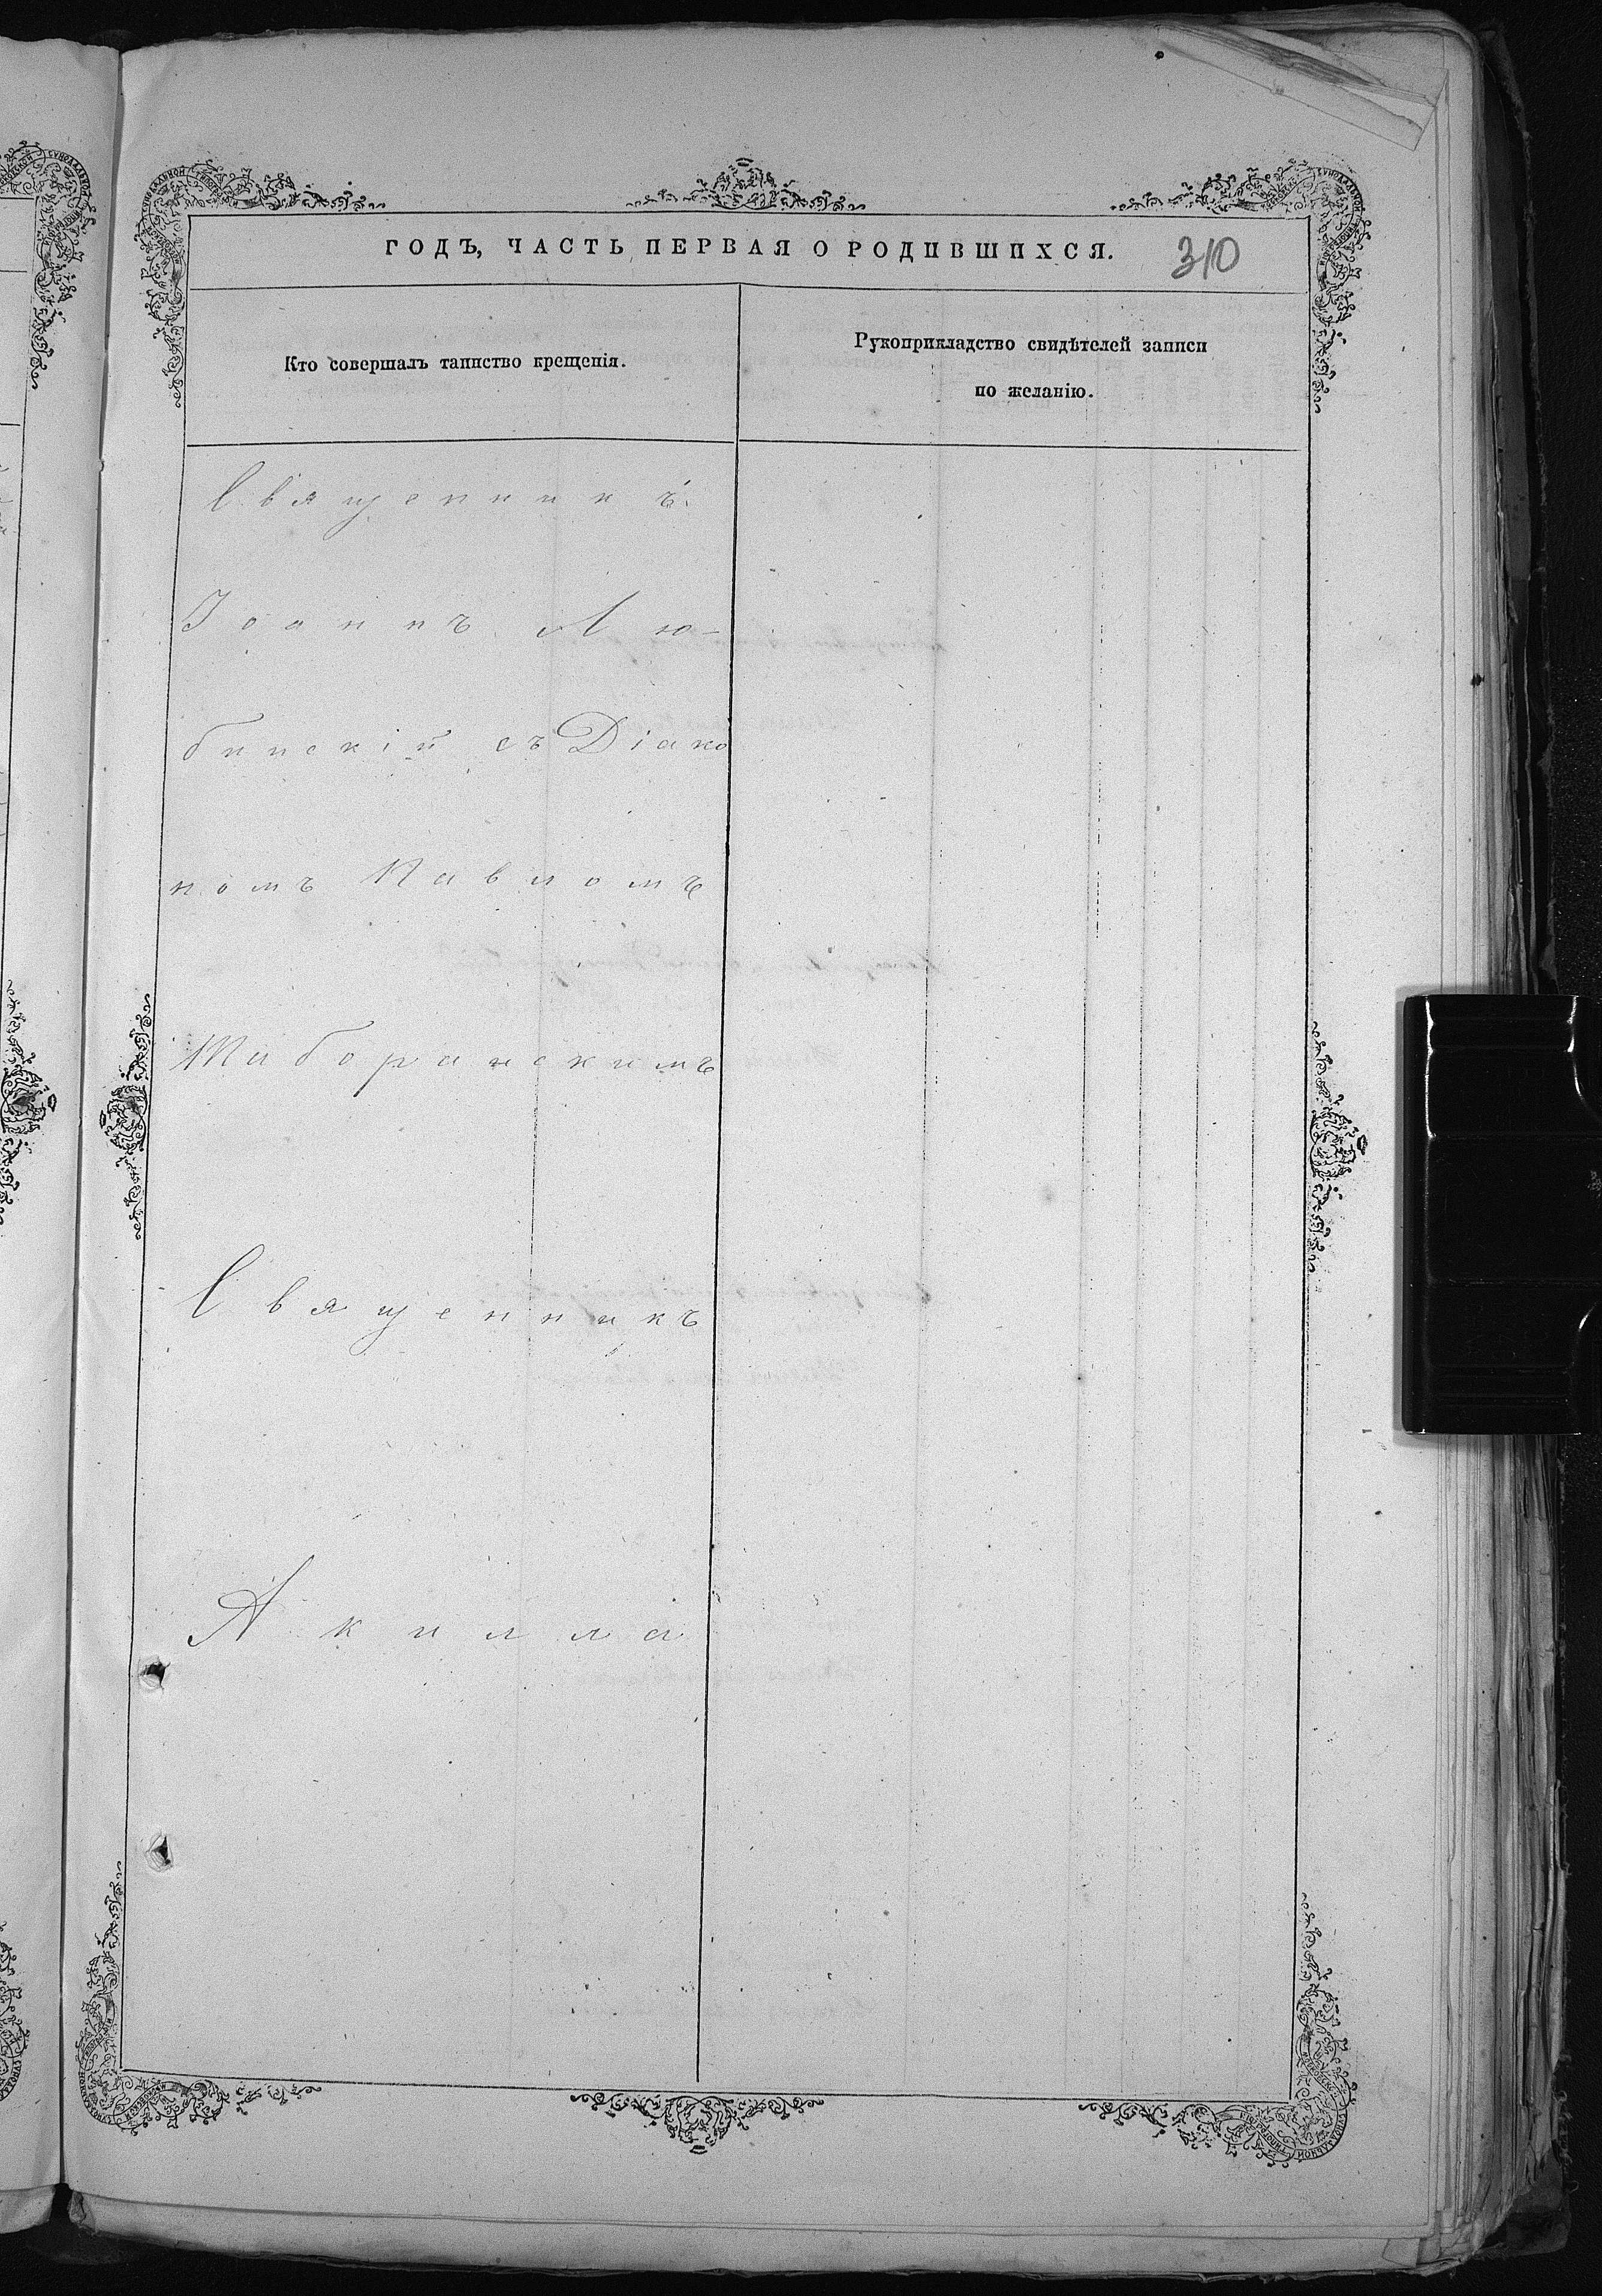 ГОДЪ, ЧАСТЬ ПЕРВАЯ О РОДИВШИХСЯ.
310
Кто совершалъ таинство крещенія.
Рукоприкладство свидѣтелей записи
по желанію.
Священникъ
Іоаннъ Лю-
бинскій съ Діако
номъ Павломъ
Таборанскимъ
Священникъ
Акилла